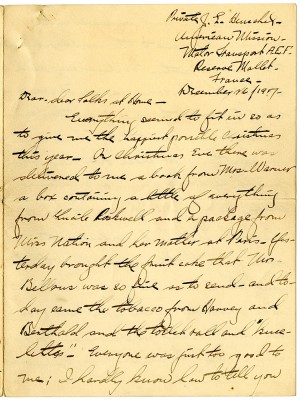 Private J. L.
American Mission-
Motor Transport A.E.F.
Reserve Mallet-
France-
December 1917-
Dear, dear folks at Home-
Everything seemed to fit in so as
to give me the happiest possible Christmas
this year- On Christmas Eve there was
delivered to me a book from Mrs. Warner
a box containing a little of everything
from Lucile and a package from
Miss Nation and her mother at Paris- Yes-
terday brought the fruit cake that Mrs.
was so fine as to send- and to-
day came the tobacco from Harvey and
Berthold and the ball and
letter"- Everyone was just too good to
me; I hardly know how to tell you